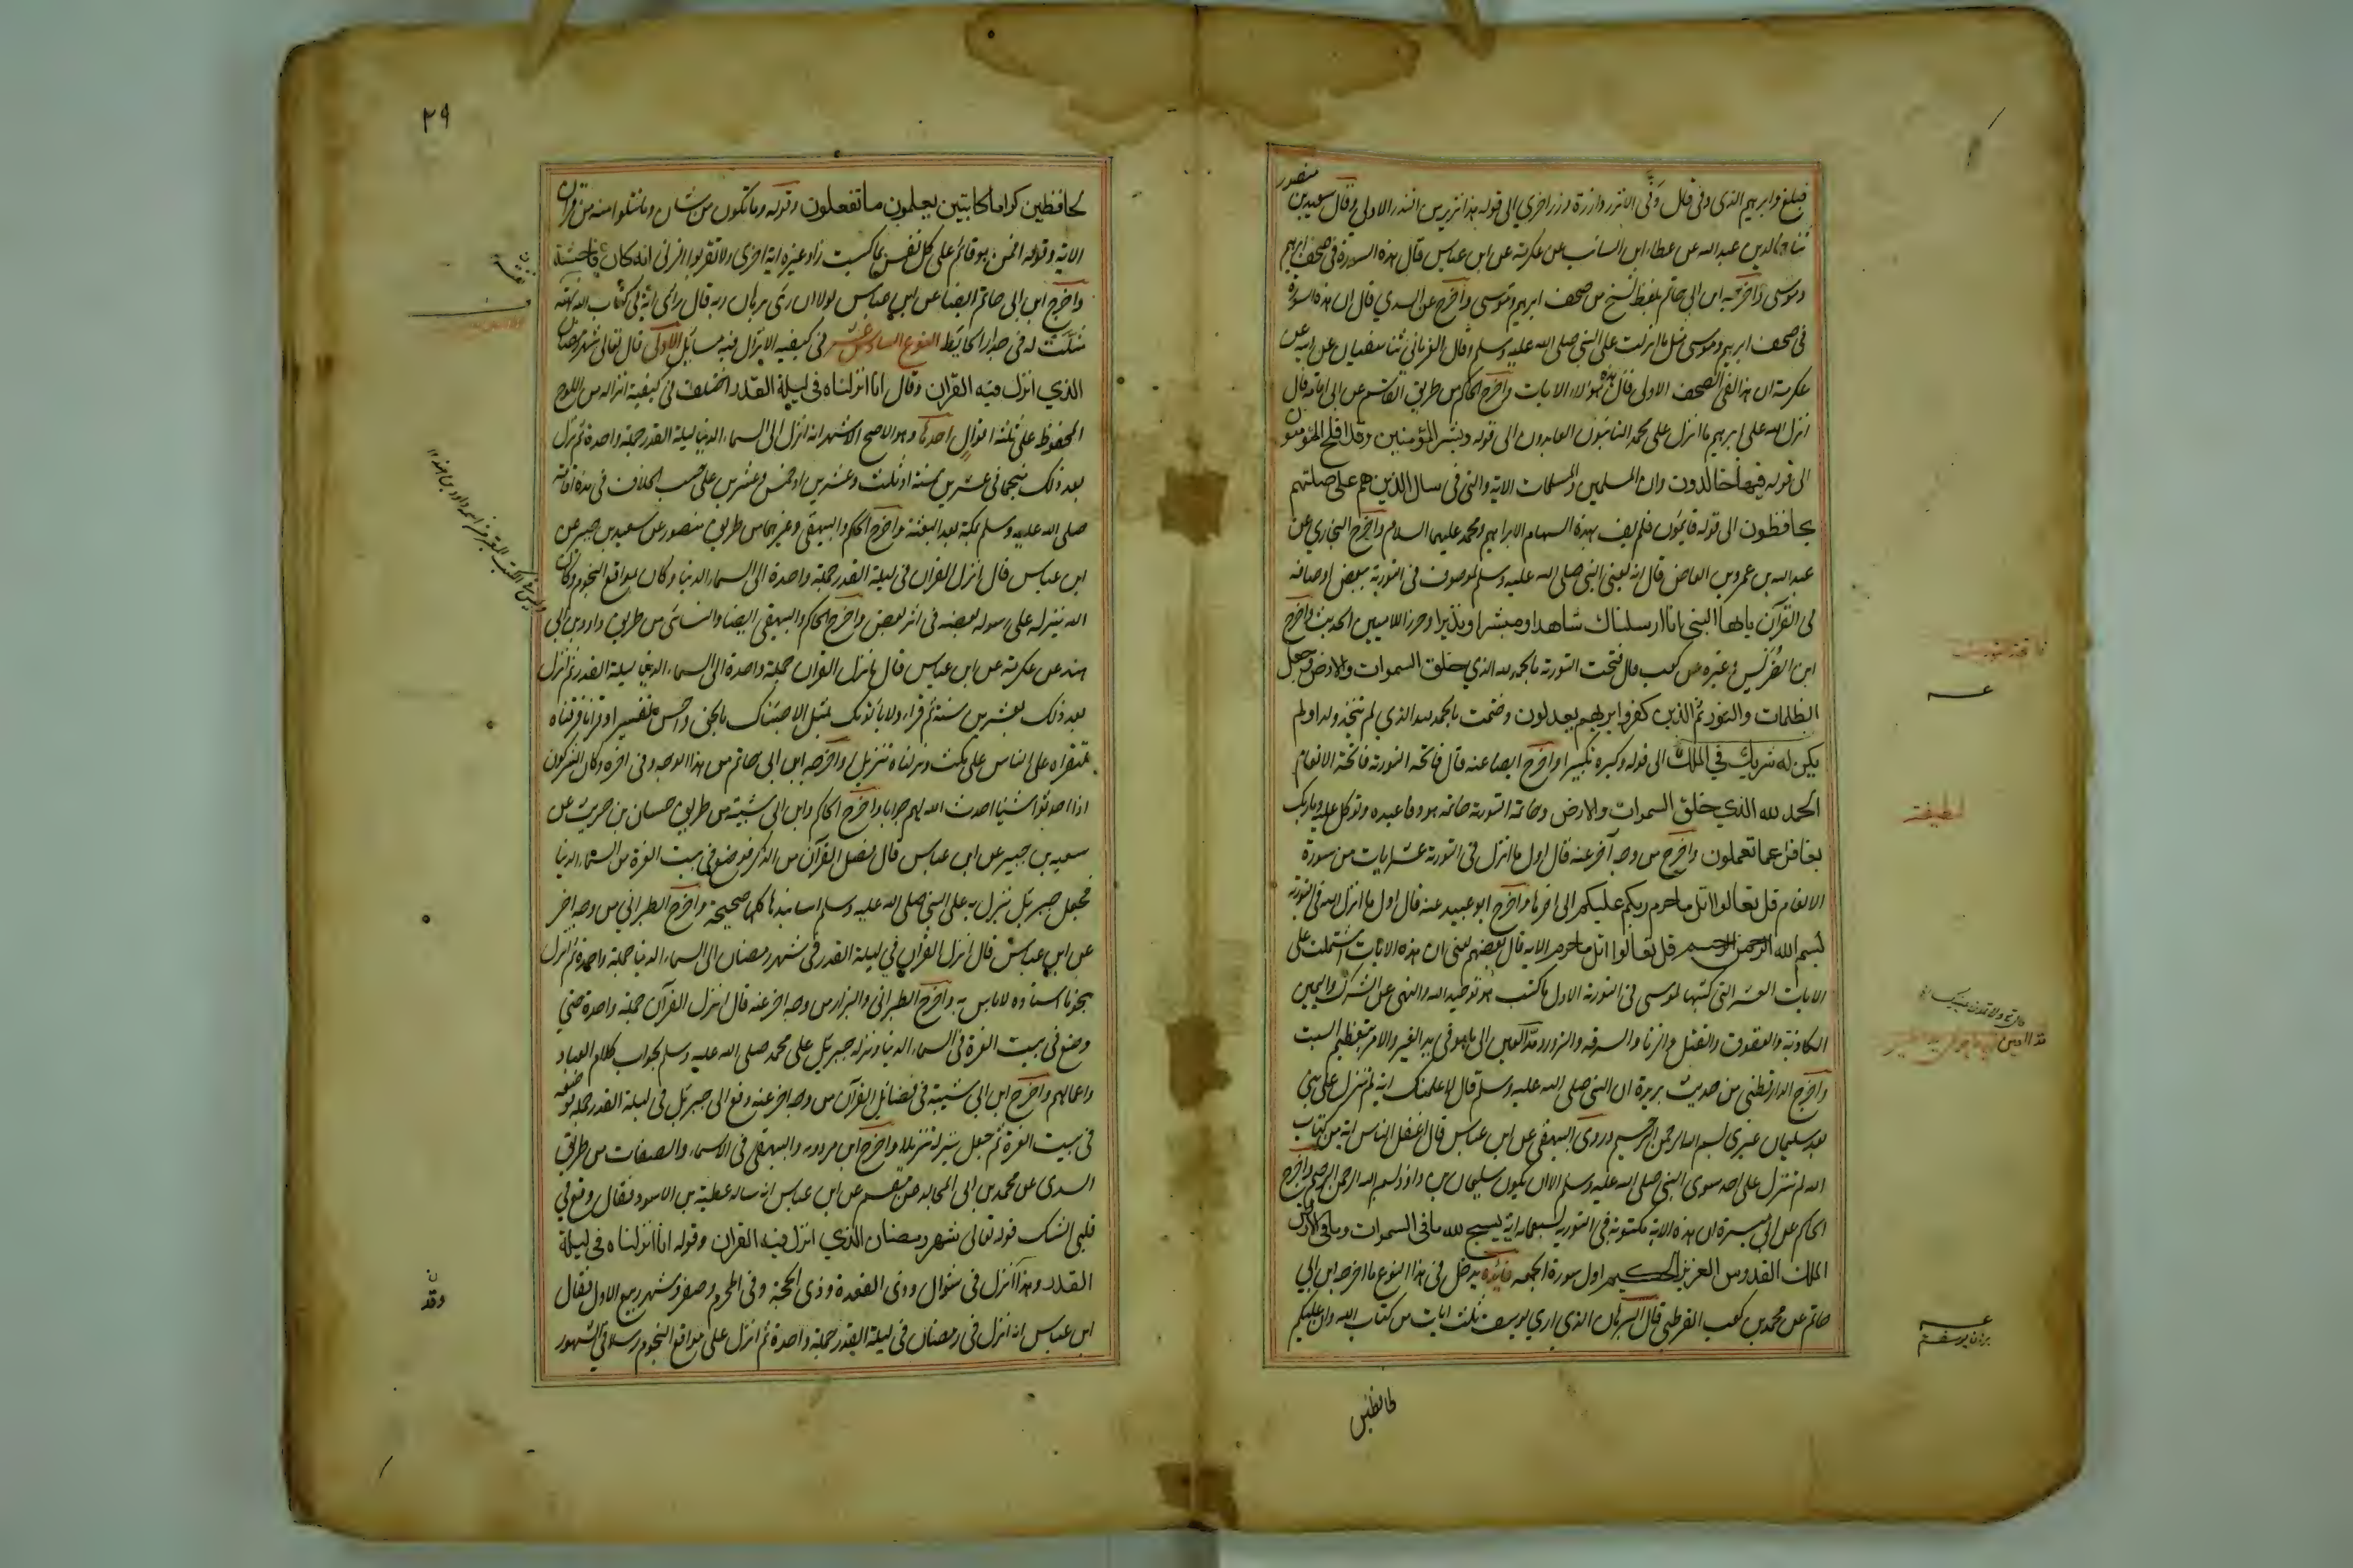 فبلغ وابرهيم الذى وفى قال وَفّى الا تزر وازرة وزر اخرى الى قوله هذا نذير من النذر الاولى وقال سعيد بن
منصور
ثنا خالد بن عبد الله عن عطاء ابن السائب عن عكرمة عن ابن عباس قال هذه السورة فى صحف ابرهيم
وموسى واخرجه ابن ابى حاتم بلفظ نسخ من صحف ابرهيم وموسى واخرج عن السدي قال ان هذه السورة
فى صحف ابرهيم وموسى مثل ما انزلت على النبى صلى الله عليه وسلم وقال الفريابى ثنا سفيان عن ابيه عن
عكرمة ان هذا لفى الصحف الاولى قال هؤلاء الايات واخرج الحاكم من طريق القاسم عن ابى امامة قال
انزل الله على ابرهيم ما انزل على محمد التائبون العابدون الى قوله وبشر المؤمنين وقد افلح المؤمنون
الى قوله فيها خالدون وان المسلمين والمسلمات الاية والتى فى سال الذين هم على صلتهم
يحافظون الى قوله قايمون فلم يف بهذه السهام الا ابرهيم ومحمد عليهما السلام واخرج البخارى عن
عبد الله بن عمرو بن العاص قال انه يعنى النبى صلى الله عليه وسلم لموصوف فى التورية ببعض اوصافه
فى القرآن يايها النبى انا ارسلناك شاهدا ومبشرا ونذيرا وحرزا للاميين الحديث واخرج
ابن الضريس وغيره عن كعب قال فتحت التورية بالحمد لله الذي خلق السموات والارض وجعل
الظلمات والنور ثم الذين كفروا بربهم يعدلون وختمت بالحمد لله الذي لم يتخذ ولدا ولم
يكن له شريك في الملك الى قوله وكبره تكبيرا واخرج ايضا عنه قال فاتحة التورية فاتحة الانعام
الحمد لله الذي خلق السموات والارض وخاتمة التورية خاتمة هود فاعبده وتوكل عليه وما ربك
بغافل عما تعملون واخرج من وجه آخر عنه قال اول ما انزل فى التورية عشر ايات من سورة
الانعام قل تعالوا اتل ما حرم ربكم عليكم الى اخرها واخرج ابو عبيد عنه قال اول ما انزل الله فى التورية
بسم الله الرحمن الرحيم قل تعالوا اتل ما حرم الاية قال بعضهم يعنى ان هذه الايات اشتملت على
الايات العشر التى كتبها لموسى فى التورية الاول ما كتب هو توحيد الله والنهى عن الشرك واليمين
الكاذبة والعقوق والقتل والزنا والسرقة والزور ومد العين الى ما هو فى يد الغير والامر بتعظيم السبت
واخرج الدارقطنى من حديث بريدة ان النبى صلى الله عليه وسلم قال لاعلمنك اية لم تنزل على نبى
بعد سليمان غيرى بسم الله الرحمن الرحيم وروى البيهقى عن ابن عباس قال اغفل الناس اية من كتاب
الله لم تنزل على احد سوى النبى صلى الله عليه وسلم الا ان يكون سليمان بن داود بسم الله الرحمن الرحيم واخرج
الحاكم عن ابى ميسرة ان هذه الاية مكتوبة فى التورية بسبعماية اية يسبح لله ما فى السموات وما فى الارض
الملك القدوس العزيز الحكيم اول سورة الجمعة فائدة يدخل فى هذا النوع ما اخرجه ابن ابى
حاتم عن محمد بن كعب القرظى قال البرهان الذى ارى يوسف ثلث ايات من كتاب الله وان عليكم
لحافظين
لطيفة
برهان يوسف
٢٩
لحافظين كراما كاتبين يعلمون ما تفعلون وقوله وما تكون من شان وما تتلوا منه من قران
الاية وقوله افمن هو قائم على كل نفس بما كسبت زاد غيره اية اخرى ولا تقربوا الزنى انه كان فاحشة
واخرج ابن ابى حاتم ايضا عن ابن عباس لولا ان رءى برهان ربه قال راى اية فى كتاب الله نهته
مثلت له فى جدار الحايط النوع السادس عشر فى كيفية الانزال فيه مسايل الاولى قال تعالى شهر رمضان
الذي انزل فيه القران وقال انا انزلناه فى ليلة القدر اختلف فى كيفية انزاله من اللوح
المحفوظ على ثلثة اقوال احدها وهو الاصح الاشهر انه انزل الى السماء الدنيا ليلة القدر جملة واحدة ثم نزل
بعد ذلك منجما فى عشرين سنة او ثلث وعشرين او خمس وعشرين على حسب الخلاف فى مدة اقامته
صلى الله عليه وسلم بمكة بعد البعثة واخرج الحاكم والبيهقى وغيرهما من طريق منصور عن سعيد بن جبير عن
ابن عباس قال انزل القران فى ليلة القدر جملة واحدة الى السماء الدنيا وكان بمواقع النجوم وكان
الله ينزله على رسوله بعضه فى اثر بعض واخرج الحاكم والبيهقى ايضا والنسائى من طريق داود بن ابى
هند عن عكرمة عن ابن عباس قال انزل القران جملة واحدة الى السماء الدنيا ليلة القدر ثم انزل
بعد ذلك بعشرين سنة ثم قراء ولا ياتونك بمثل الا جئناك بالحق واحسن تفسيرا وقرانا فرقناه
لتقراه على الناس على مكث ونزلناه تنزيلا واخرجه ابن ابى حاتم من هذا الوجه وفى اخره وكان المشركون
اذا احدثوا شيئا احدث الله لهم جوابا واخرج الحاكم وابن ابى شيبة من طريق حسان بن حريث عن
سعيد بن جبير عن ابن عباس قال فصل القرآن من الذكر فوضع فى بيت العزة من السماء الدنيا
فجعل جبريل ينزل به على النبى صلى الله عليه وسلم اسانيدها كلها صحيحة واخرج الطبرانى من وجه اخر
عن ابن عباس قال انزل القران في ليلة القدر فى شهر رمضان الى السماء الدنيا جملة واحدة ثم انزل
نجوما اسناده لا باس به واخرج الطبرانى والبزار من وجه اخر عنه قال انزل القرآن جملة واحدة حتى
وضع فى بيت العزة فى السماء الدنيا ونزله جبريل على محمد صلى الله عليه وسلم بجواب كلام العباد
واعمالهم واخرج ابن ابى شيبة فى فضايل القرآن من وجه اخر عنه دفع الى جبريل فى ليلة القدر جملة فوضعه
فى بيت العزة ثم جعل ينزله تنزيلا واخرج ابن مردويه والبيهقى فى الاسماء والصفات من طريق
السدى عن محمد بن ابى المجالد عن مقسم عن ابن عباس انه ساله عطية بن الاسود فقال وقع في
قلبى الشك قوله تعالى شهر رمضان الذي انزل فيه القران وقوله انا انزلناه فى ليلة
القدر وهذا انزل فى شوال وذى القعدة وذى الحجة وفى المحرم وصفر وشهر ربيع الاول فقال
ابن عباس انه انزل فى رمضان فى ليلة القدر جملة واحدة ثم انزل على مواقع النجوم رسلا فى الشهور
وقد